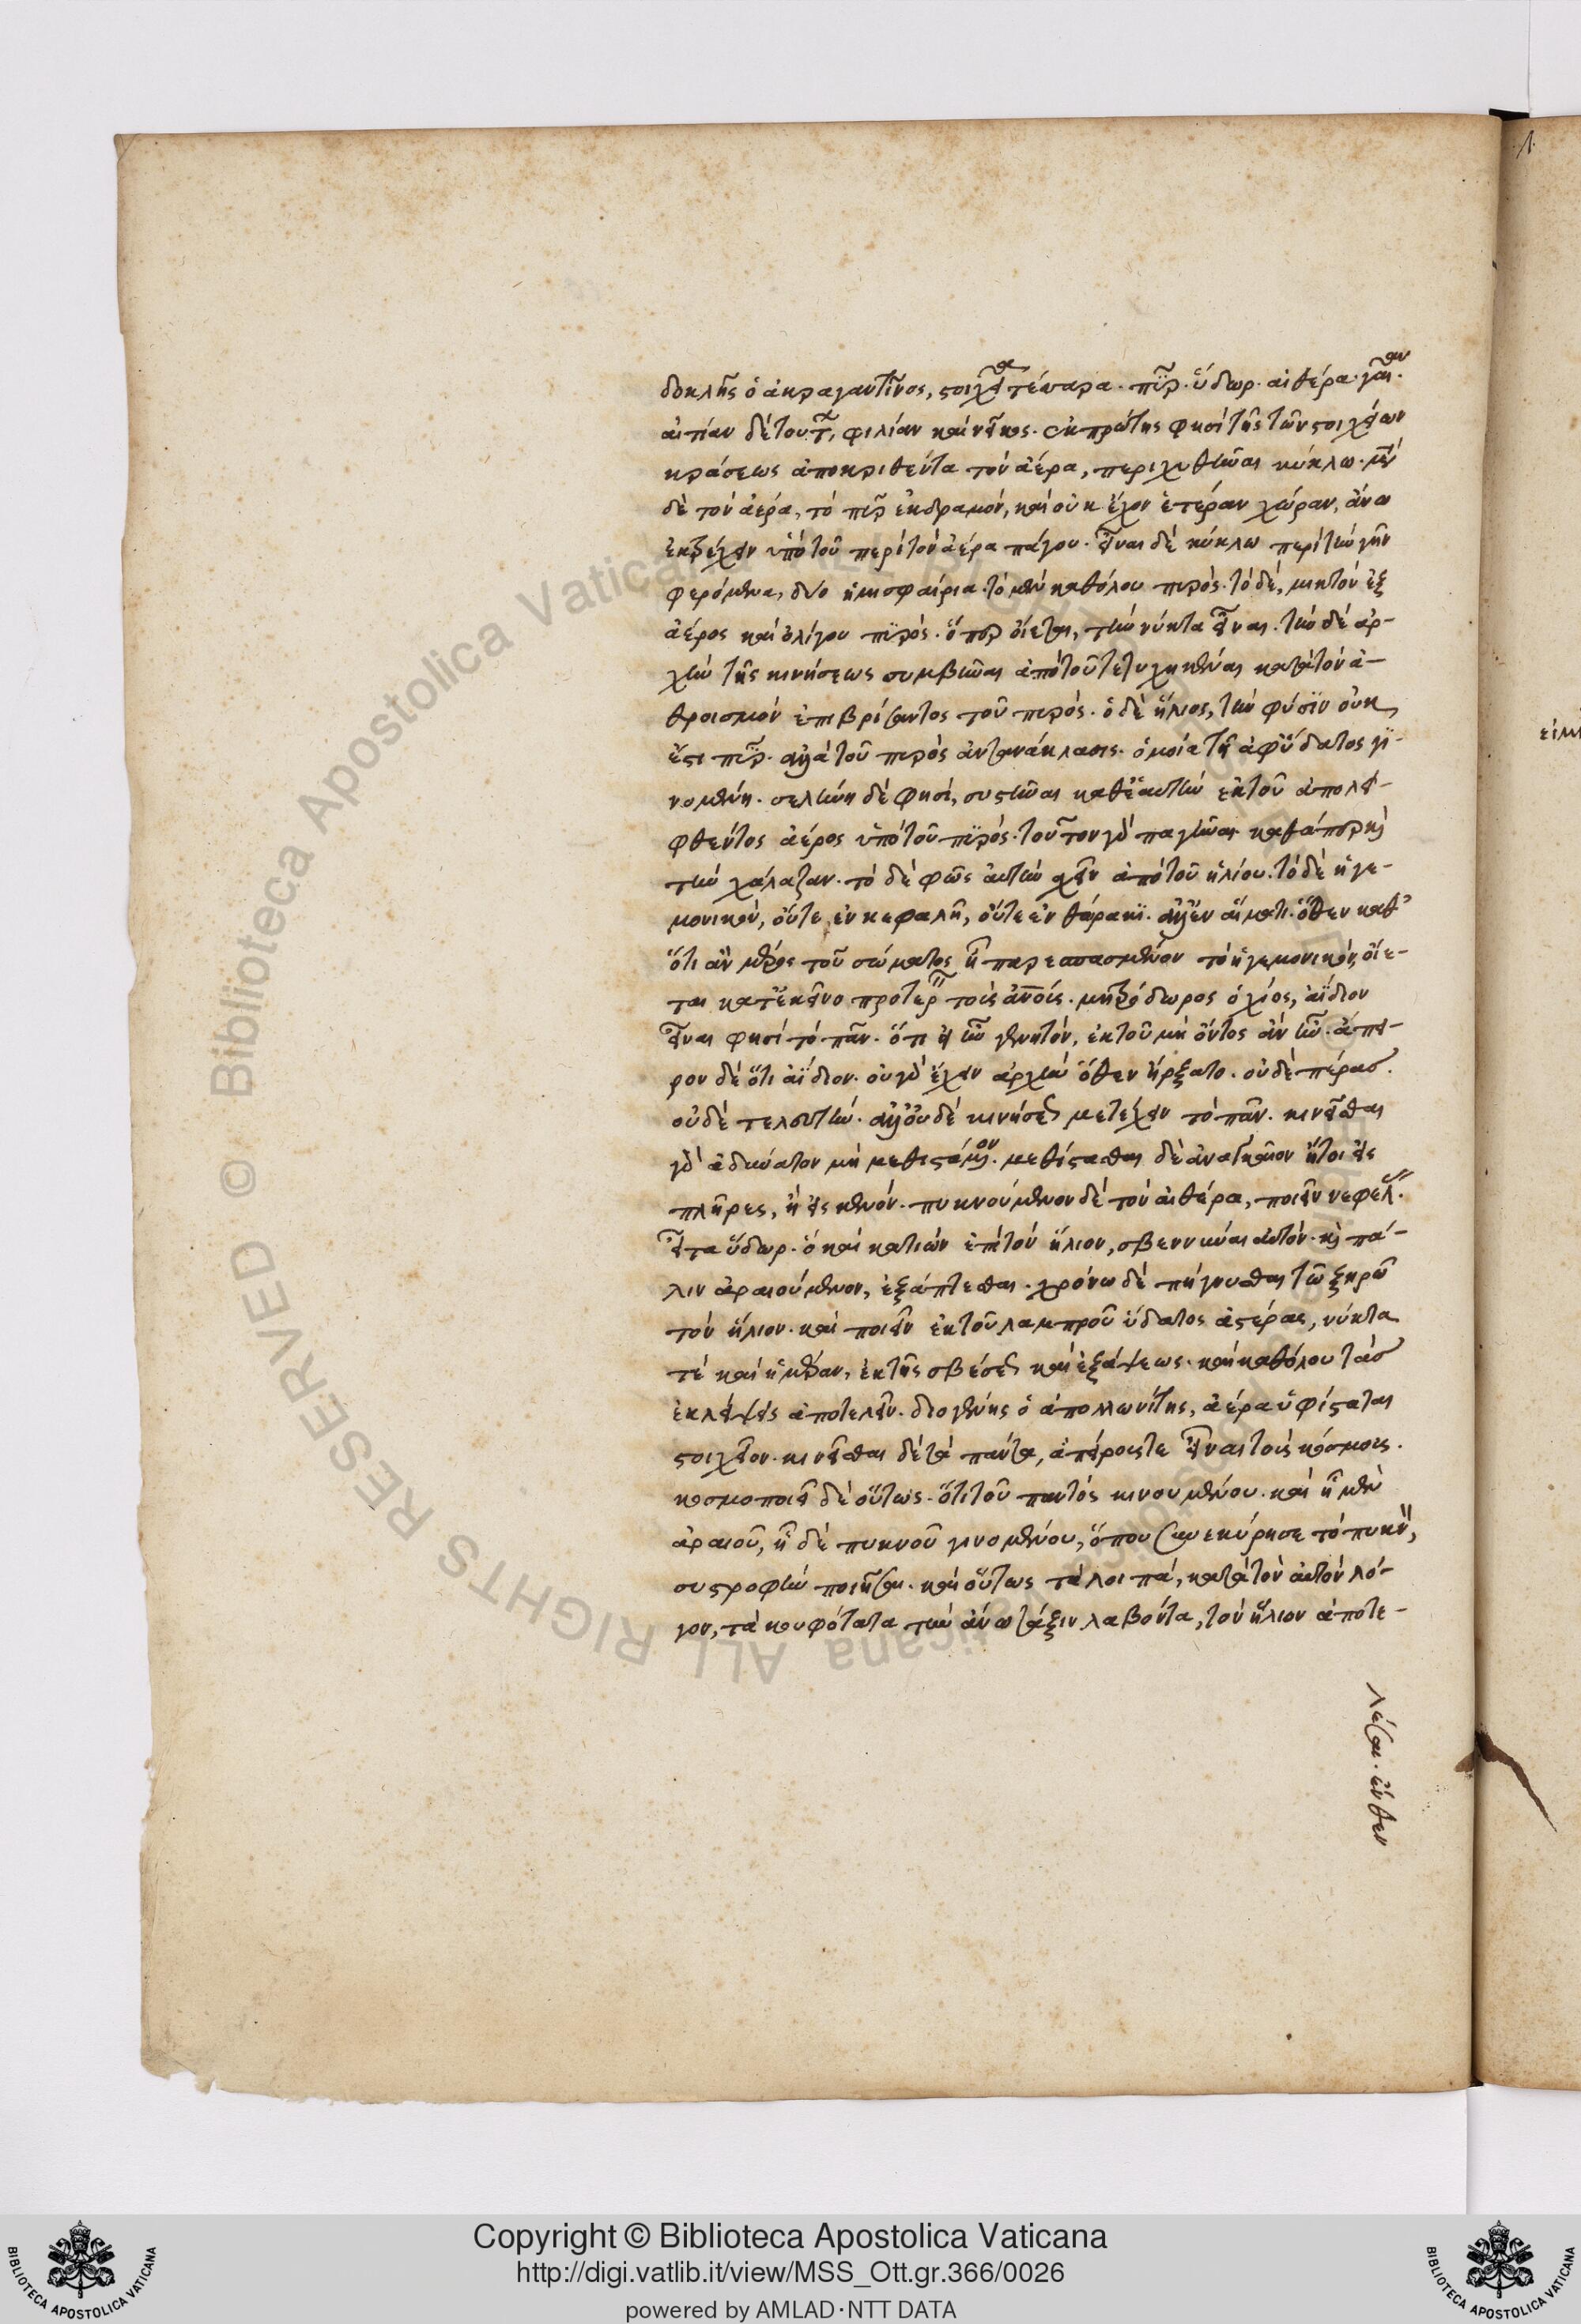 δοκλῆς ὁ ἀκραγαντῖνος, στοιχεῖα τέσσαρα· πῦρ· ὕδωρ· αἰθέρα· γαῖαν·
αἰτίαν δὲ τούτων, φιλίαν καὶ νεῖκος. ἐκ πρώτης φησὶ τῆς τῶν στοιχείων
κράσεως ἀποκριθέντα τὸν ἀέρα, περιχυθῆναι κύκλω· μετὰ
δὲ τὸν ἀέρα, τὸ πῦρ ἐκδραμὸν, καὶ οὐκ ἔχον ἑτέραν χώραν, ἄνω
ἐκτρέχειν ὑπὸ τοῦ περὶ τὸν ἀέρα πάγου· εἶναι δὲ κύκλω περὶ τὴν γῆν
φερόμενα, δύο ἡμισφαίρια· τὸ μὲν καθόλου πυρός· τὸ δὲ, μικτὸν ἐξ
ἀέρος καὶ ὀλίγου πυρός· ὅπερ οἴεται, τὴν νύκτα εἶναι· τὴν δὲ ἀρ-
χὴν τῆς κινήσεως συμβῆναι ἀπὸ τοῦ τετυχηκέναι κατὰ τὸν ἀ-
θροισμὸν ἐπιβρίσαντος τοῦ πυρός· ὁ δὲ ἥλιος, τὴν φύσιν οὐκ
ἔστι πῦρ· ἀλλὰ τοῦ πυρὸς ἀντανάκλασις· ὁμοία τῇ ἀφ' ὕδατος γι-
νομένη· σελήνην δέ φησι, συστῆναι καθ' ἑαυτὴν ἐκ τοῦ ἀπολει-
φθέντος ἀέρος ὑπὸ τοῦ πυρός· τοῦτον γὰρ παγῆναι καθάπερ καὶ
τὴν χάλαζαν· τὸ δὲ φῶς αὐτὴν ἔχειν ἀπὸ τοῦ ἡλίου· τὸ δὲ ἡγε-
μονικὸν, οὔτε ἐν κεφαλῇ, οὔτε ἐν θώρακι· ἀλλ' ἐν αἵματι· ὅθεν καθ'
ὅτι ἂν μέρος τοῦ σώματος ᾖ παρεσπασμένον τὸ ἡγεμονικὸν, οἴε-
ται κατ' ἐκεῖνο προτερ τοὺς ἀνους· μητρόδωρος ὁ χῖος, ἀΐδιον
εἶναι φησὶ τὸ πᾶν· ὅτι εἰ ἦν γεννητὸν, ἐκ τοῦ μὴ ὄντος ἂν ἦν· ἄπει-
ρον δὲ ὅτι ἀΐδιον· οὐ γὰρ ἔχειν ἀρχὴν ὅθεν ἤρξατο· οὐδὲ πέρας·
οὐδὲ τελευτήν· ἀλλ' οὐδὲ κινήσεως μετέχειν τὸ πᾶν· κινεῖσθαι
γὰρ ἀδύνατον μὴ μεθιστάμενον· μεθίστασθαι δὲ ἀναγκαῖον ἤτοι εἰς
πλῆρες, ἢ εἰς κενόν· πυκνούμενον δὲ τὸν αἰθέρα, ποιεῖν νεφέλας·
εἶτα ὕδωρ· ὃ καὶ κατιὼν ἐπὶ τὸν ἥλιον, σβεννύναι αὐτόν· καὶ πά-
λιν ἀραιούμενον, ἐξάπτεσθαι· χρόνω δὲ πήγνυσθαι τῶ ξηρῶ
τὸν ἥλιον· καὶ ποιεῖν ἐκ τοῦ λαμπροῦ ὕδατος ἀστέρας, νύκτα
τὲ καὶ ἡμέραν, ἐκ τῆς σβέσεως καὶ ἐξάψεως· καὶ καθόλου τὰς
ἐκλείψεις ἀποτελεῖν· διογένης ὁ ἀπολλωνίτης, ἀέρα ὑφίσταται
στοιχεῖον· κινεῖσθαι δὲ τὰ πάντα, ἀπείρους τε εἶναι τοὺς κόσμους·
κοσμοποιεῖ δὲ οὕτως· ὅτι τοῦ παντὸς κινουμένου· καὶ ᾗ μὲν
ἀραιοῦ, ᾗ δὲ πυκνοῦ γινομένου, ὅπου συνεκύρησε τὸ πυκνὸν,
συστροφὴν ποιῆσαι· καὶ οὕτως τὰ λοιπὰ, κατὰ τὸν αὐτὸν λό-
γον, τὰ κουφότατα τὴν ἄνω τάξιν λαβόντα, τὸν ἥλιον ἀποτε-
λέσαι· ἔνθεν
Copyright © Biblioteca Apostolica Vaticana
http://digi.vatlib.it/view/MSS_Ott.gr.366/0026
powered by AMLAD·NTT DATA